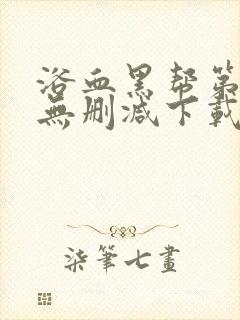 浴血黑帮第
無删减下載
柒筆七畫